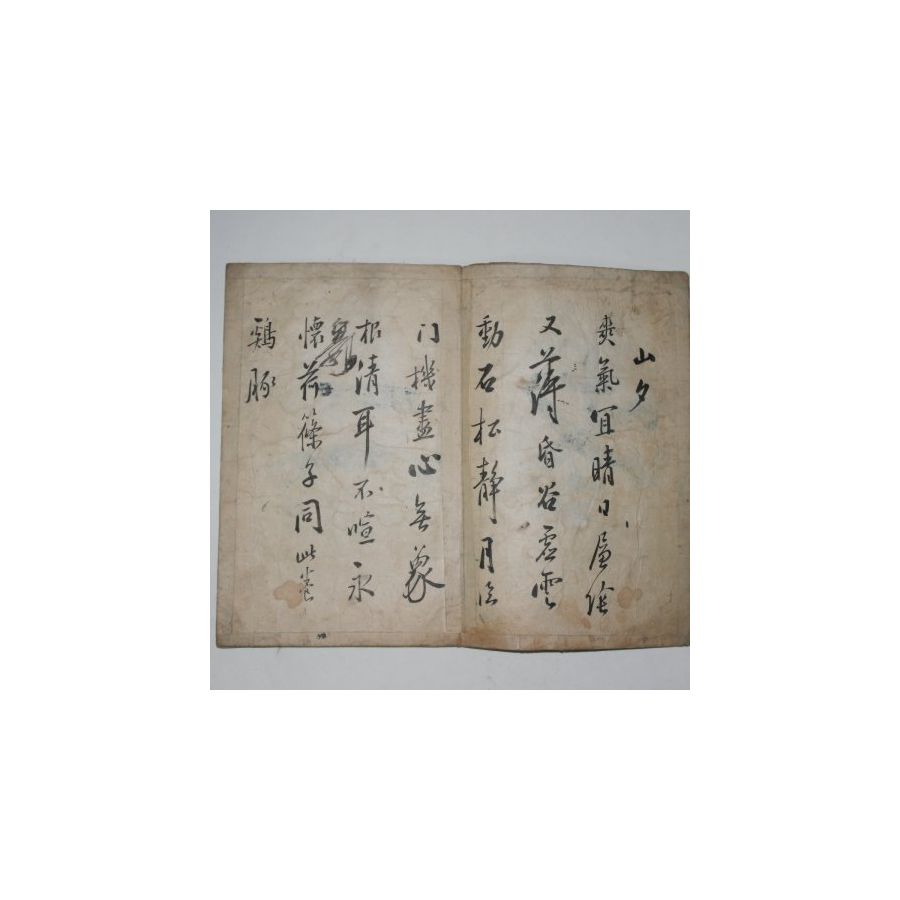 山夕
爽氣宜晴日簷陰
又薄昏谷虛雲
動石松靜月臨
門機盡心無象
根清耳不喧永
懷荷篠子同此養
鷄豚